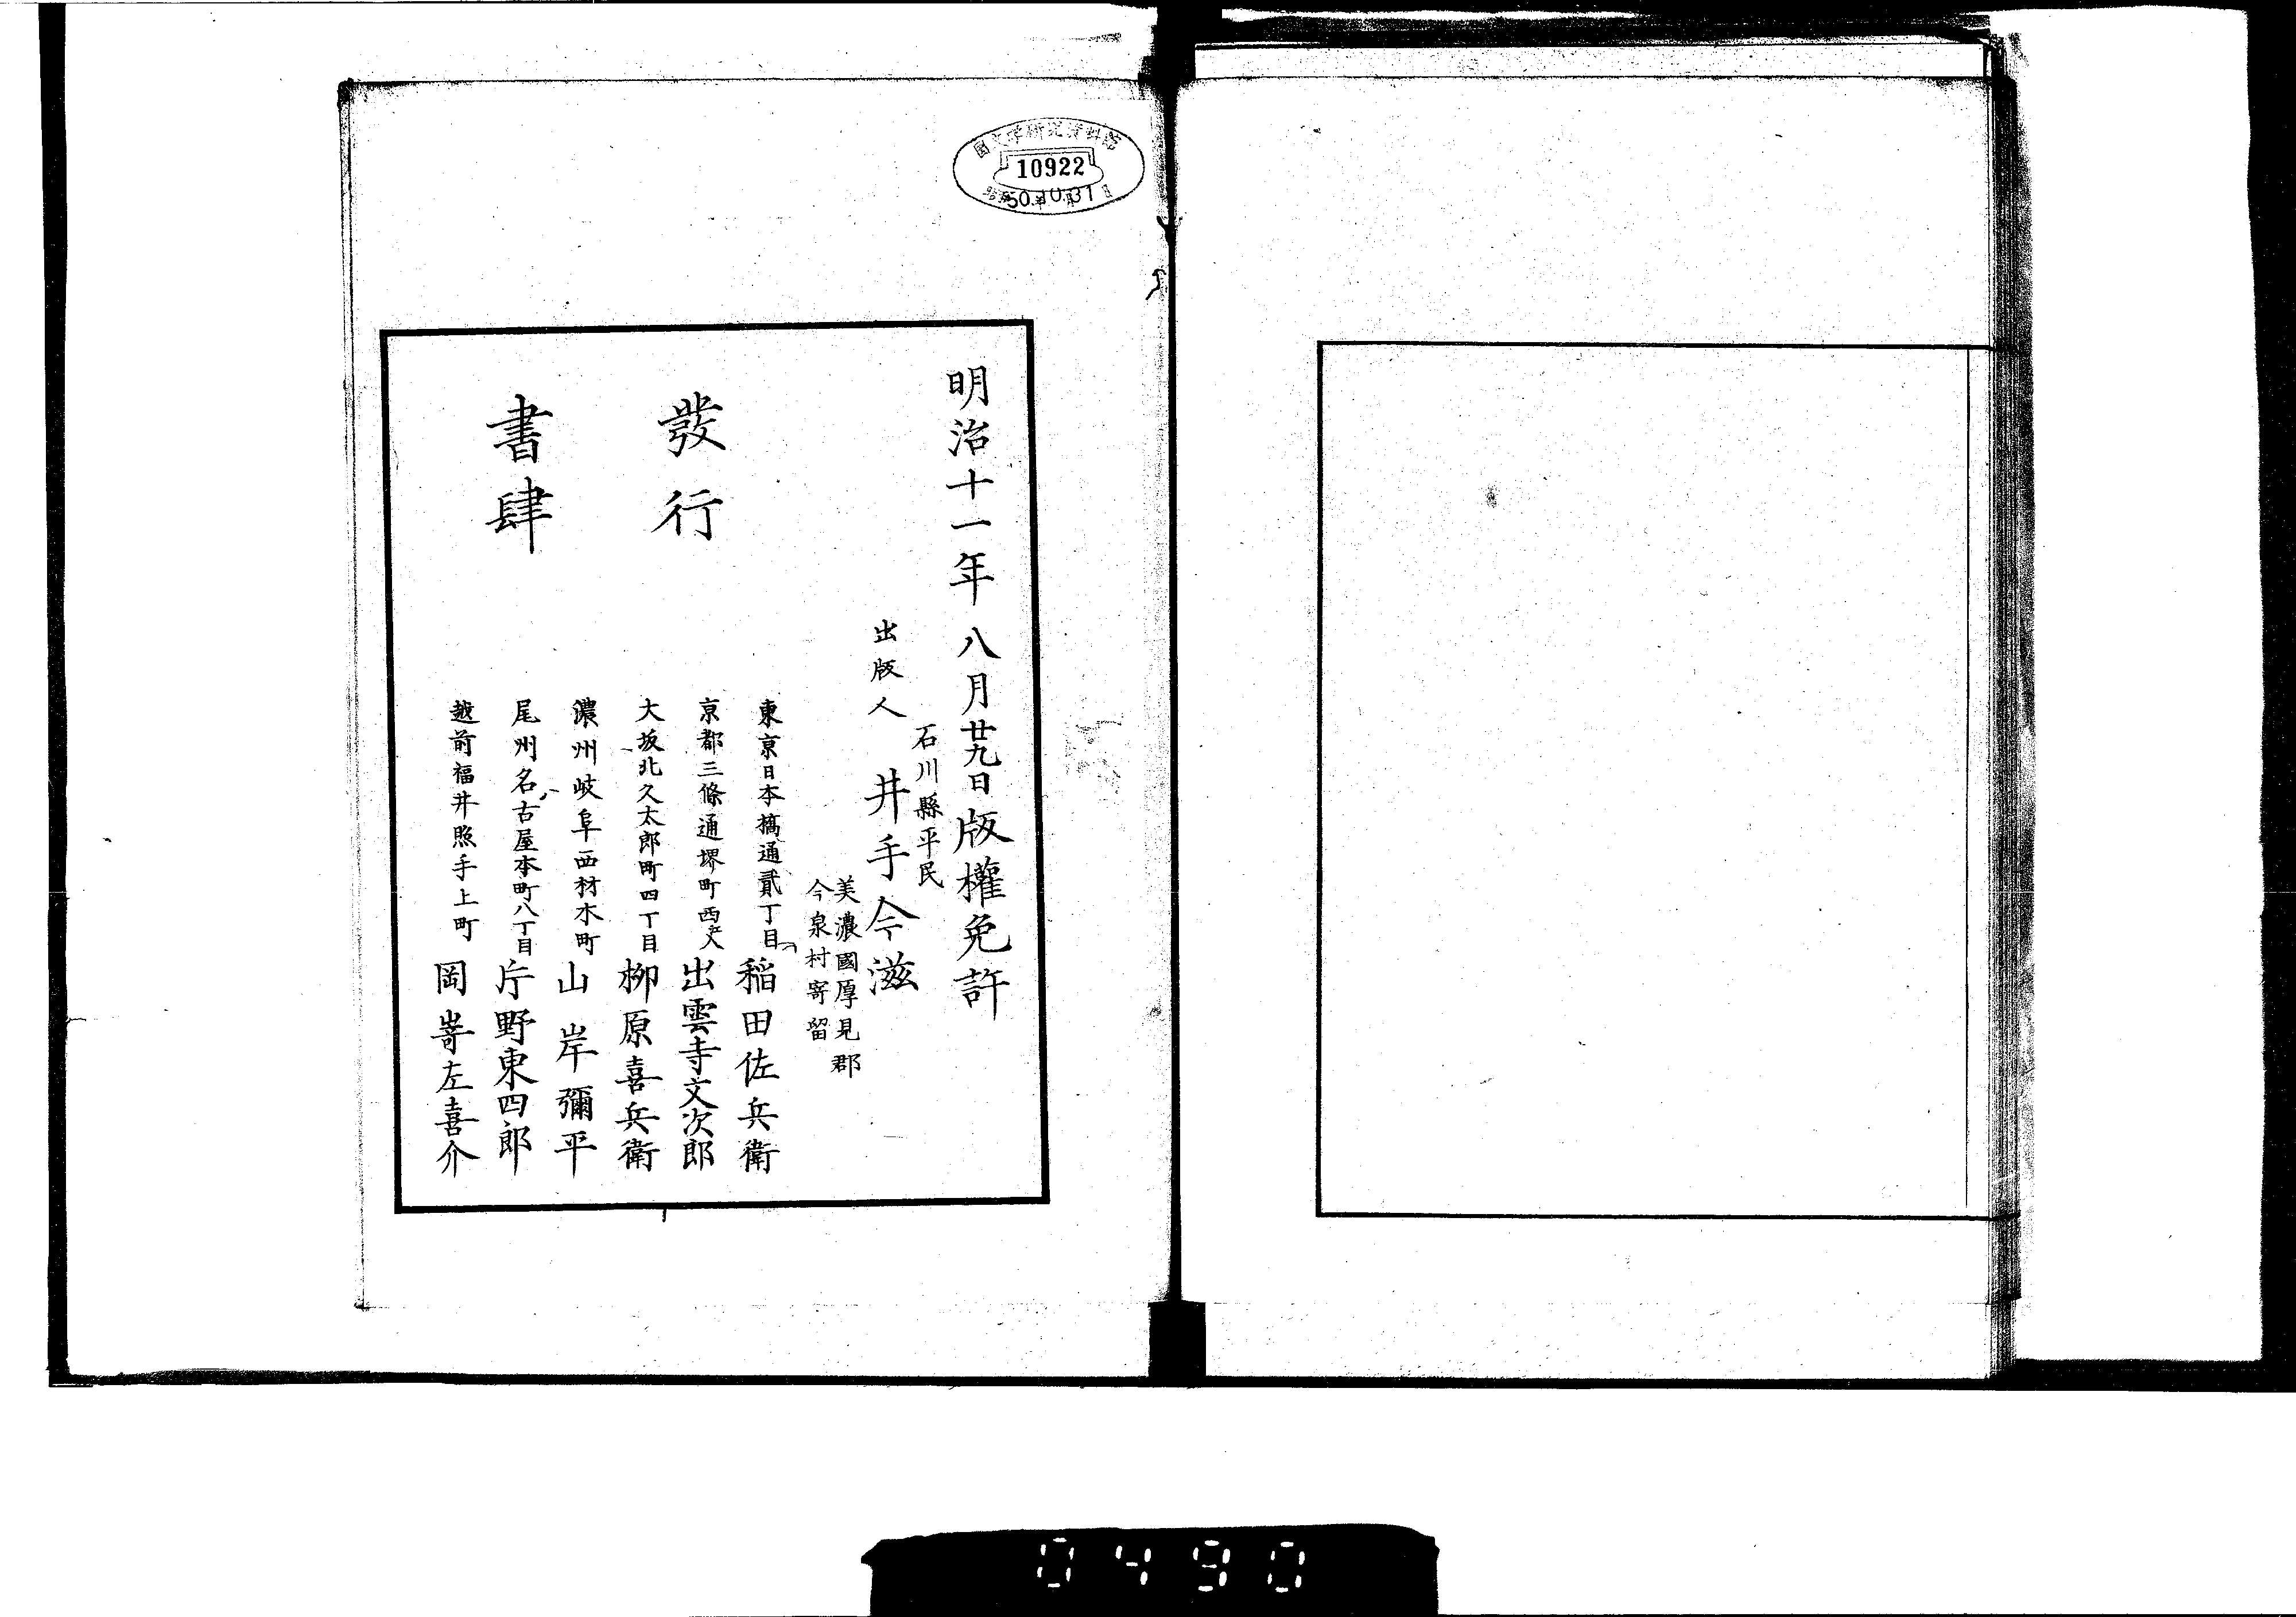 國文学研究資料館
10922
昭和50年10月31日
明治十一年八月廿九日版權免許
石川縣平民
出版人　井手今滋
美濃國厚見郡
今泉村寄留
發行
書肆
東京日本橋通貳丁目　稲田佐兵衛
京都三條通堺町西入　出雲寺文次郎
大坂北久太郎町四丁目　柳原喜兵衛
濃州岐阜西材木町　山岸彌平
尾州名古屋本町八丁目　片野東四郎
越前福井照手上町　岡嵜左喜介
0490